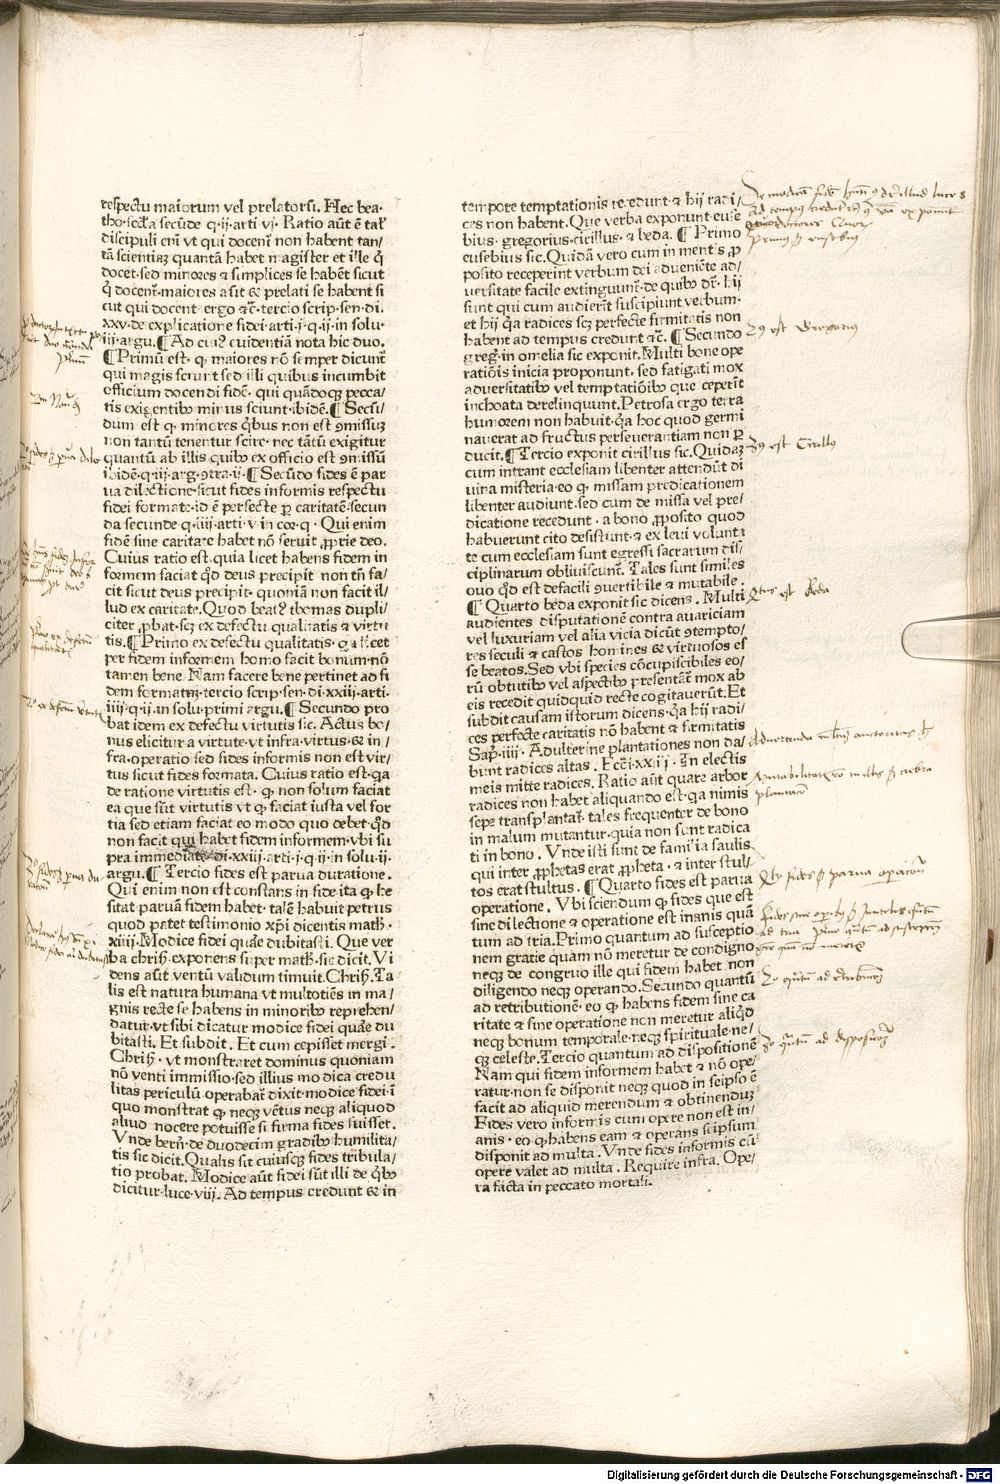 respectu maiorum vel prelatorū. Hec bea-
tho·scďa secūde q·ii·arti vi· Ratio aūt ē tał
discipuli eni vt qui docent̄ non habent tan/
tā scientiaȝ quantā habet magister et ille ꝙ
docet·sed minores ⁊ simplices se habēt sicut
ꝙ docent̄·maiores aūt ⁊ prelati se habent si
cut qui docent· ergo ⁊c̄·tercio scrip·sen·di.
xxv·de explicatione fidei·arti·i·q·ii·in solu·
iii·argu.¶Ad cuiꝰ euidentiā nota hic duo.
¶Primū est· ꝙ maiores nō semper dicunt̄
qui magis sciunt sed illi quibus incumbit
officium docendi fidē· qui quādoqȝ pecca/
tis exigentibꝰ minus sciunt·ibidē.¶Secū/
dum est ꝙ minores ꝗbus non est ꝯmissuȝ
non tantū tenentur scire·nec tātū exigitur
quantū ab illis quibꝰ ex officio est ꝯmissū
ibidē·q·iii·arg·ꝯtra·ii·¶Secūdo fides ē par
ua dilectione·sicut fides informis respectu
fidei formate·id ē perfecte ꝑ caritatē·secun
da secunde·q·iiij·arti·v·in coꝛ·q· Qui enim
fidē sine caritate habet nō seruit ꝓprie deo.
Cuius ratio est·quia licet habens fidem in
formem faciat ꝙd deus precipit non tn̄ fa/
cit sicut deus precipit· quoniā non facit il/
lud ex caritate.Quod beatꝰ thomas dupli/
citer ꝓbat·scȝ ex defectu qualitatis ⁊ virtu
tis.¶Primo ex defectu qualitatis· qꝛ licet
per fidem informem homo facit bonum·nō
tamen bene. Nam facere bene pertinet ad fi
dem formatam·tercio scrip·sen·di·xxiij·arti.
iiij·q·ij·in solu·primi argu.¶Secundo pro
bat idem ex defectu virtutis sic. Actus bo/
nus elicitur a virtute·vt infra·virtus·⁊ in/
fra·operatio sed fides informis non est vir/
tus sicut fides formata. Cuius ratio est·qa
de ratione virtutis est· ꝙ non solum faciat
ea que sūt virtutis vt ꝙ faciat iusta vel for
tia sed etiam faciat eo modo quo debet·ꝙd
non facit qui habet fidem informem·vbi su
pra immediate·di·xxiij·arti·i·q·ii·in solu·ii·
argu.¶Tercio fides est parua duratione.
Qui enim non est constans in fide ita ꝙ he
sitat paruā fidem habet· talē habuit petrus
quod patet testimonio xp̄i dicentis math·
xiiij·Modice fidei quare dubitasti. Que ver
ba chriß·exponens super math·sic dicit. Vi
dens aūt ventū validum timuit. Chriß. Ta
lis est natura humana vt multotiēs in ma/
gnis recte se habens in minoribꝰ reprehen/
datur·vt sibi dicatur modice fidei quare du
bitasti. Et subdit. Et cum cepisset mergi.
Chriß· vt monstraret dominus quoniam
nō venti immissio·sed illius modica credu
litas periculū operabat̄ dixit·modice fidei·i
quo monstrat ꝙ neqȝ vētus neqȝ aliquod
aliud nocere potuisse si firma fides fuisset.
Vnde berñ·de duodecim gradibꝰ humilita/
tis sic dicit. Qualis sit cuiusqȝ fides tribula/
tio probat. Modice aūt fidei sūt illi de ꝗbꝰ
dicitur·luce·viij. Ad tempus credunt ⁊ in
tempore temptationis recedunt·⁊ hij radi/
ces non habent. Que verba exponunt euse
bius· gregorius·cirillus·⁊ beda.¶Primo
eusebius sic. Quidā vero cum in mentis ꝓ
posito receperint verbum dei adueniēte ad/
uersitate facile extinguunt̄·de quibꝰ dr̄· hij
sunt qui cum audierīt suscipiunt verbum·
et hij qꝛa radices scȝ perfecte firmitatis non
habent ad tempus credunt ⁊c̄.¶Secundo
greg̃·in omelia sic exponit. Multi bone ope
ratiōis inicia proponunt· sed fatigati mox
aduersitatibꝰ vel temptatiōibꝰ que ceperīt
inchoata derelinquunt. Petrosa ergo terra
humorem non habuit·qꝛa hoc quod germi
nauerat ad fructus perseuerantiam non ꝑ
ducit.¶Tercio exponit cirillus sic. Quidaȝ
cum intrant ecclesiam libenter attendūt di
uina misteria·eo ꝙ missam predicationem
libenter audiunt·sed cum de missa vel pre/
dicatione recedunt·a bono ꝓposito quod
habuerunt cito desistunt·⁊ ex leui volunta
te cum ecclesiam sunt egressi sacrarum dis/
ciplinarum obliuiscunt̄. Tales sunt similes
ouo ꝙd est defacili ꝯuertibile ⁊ mutabile.
¶Quarto beda exponit sic dicens. Multi
audientes disputationē contra auariciam
vel luxuriam vel alia vicia dicūt ꝯtempto/
res seculi ⁊ castos homines ⁊ virtuosos es
se beatos. Sed vbi species cōcupiscibiles eo/
rū obtutibꝰ vel aspectibꝰ presentāt̄ mox ab
eis recedit quidquid recte cogitauerūt. Et
subdit causam istorum dicens·qꝛa hij radi/
ces perfecte caritatis nō habent ⁊ firmitatis
Sap̄·iiij· Adulterine plantationes non da/
bunt radices altas. Ecc̄i·xxiiij· In electis
meis mitte radices. Ratio aūt quare arbor
radices non habet aliquando est·qꝛa nimis
sepe transplantat̄·tales frequenter de bono
in malum mutantur·quia non sunt radica
ti in bono. Vnde isti sunt de familia saulis
qui inter ꝓphetas erat ꝓpheta·⁊ inter stul/
tos erat stultus.¶Quarto fides est parua
operatione. Vbi sciendum ꝙ fides que est
sine dilectione ⁊ operatione est inanis quā
tum ad tria. Primo quantum ad susceptio
nem gratie quam nō meretur de condigno
neqȝ de congruo ille qui fidem habet non
diligendo neqȝ operando. Secundo quantū
ad retributionē·eo ꝙ habens fidem sine ca
ritate ⁊ sine operatione non meretur aliꝙd
neqȝ bonum temporale·neqȝ spirituale·ne/
qȝ celeste. Tercio quantum ad dispositionē
Nam qui fidem informem habet ⁊ nō ope/
ratur·non se disponit neqȝ quod in seipso ē
facit ad aliquid merendum ⁊ obtinenduȝ
Fides vero informis cum opere non est in/
anis·eo ꝙ habens eam ⁊ operans seipsum
disponit ad multa. Vnde fides informis cū
opere valet ad multa. Require infra. Ope-
ra facta in peccato mortali.
2ꝰ est Gregorius
3ꝰ est Cirillus
Qrtus est Beda
Digitalisierung gefördert durch die Deutsche Forschungsgemeinschaft - DFG